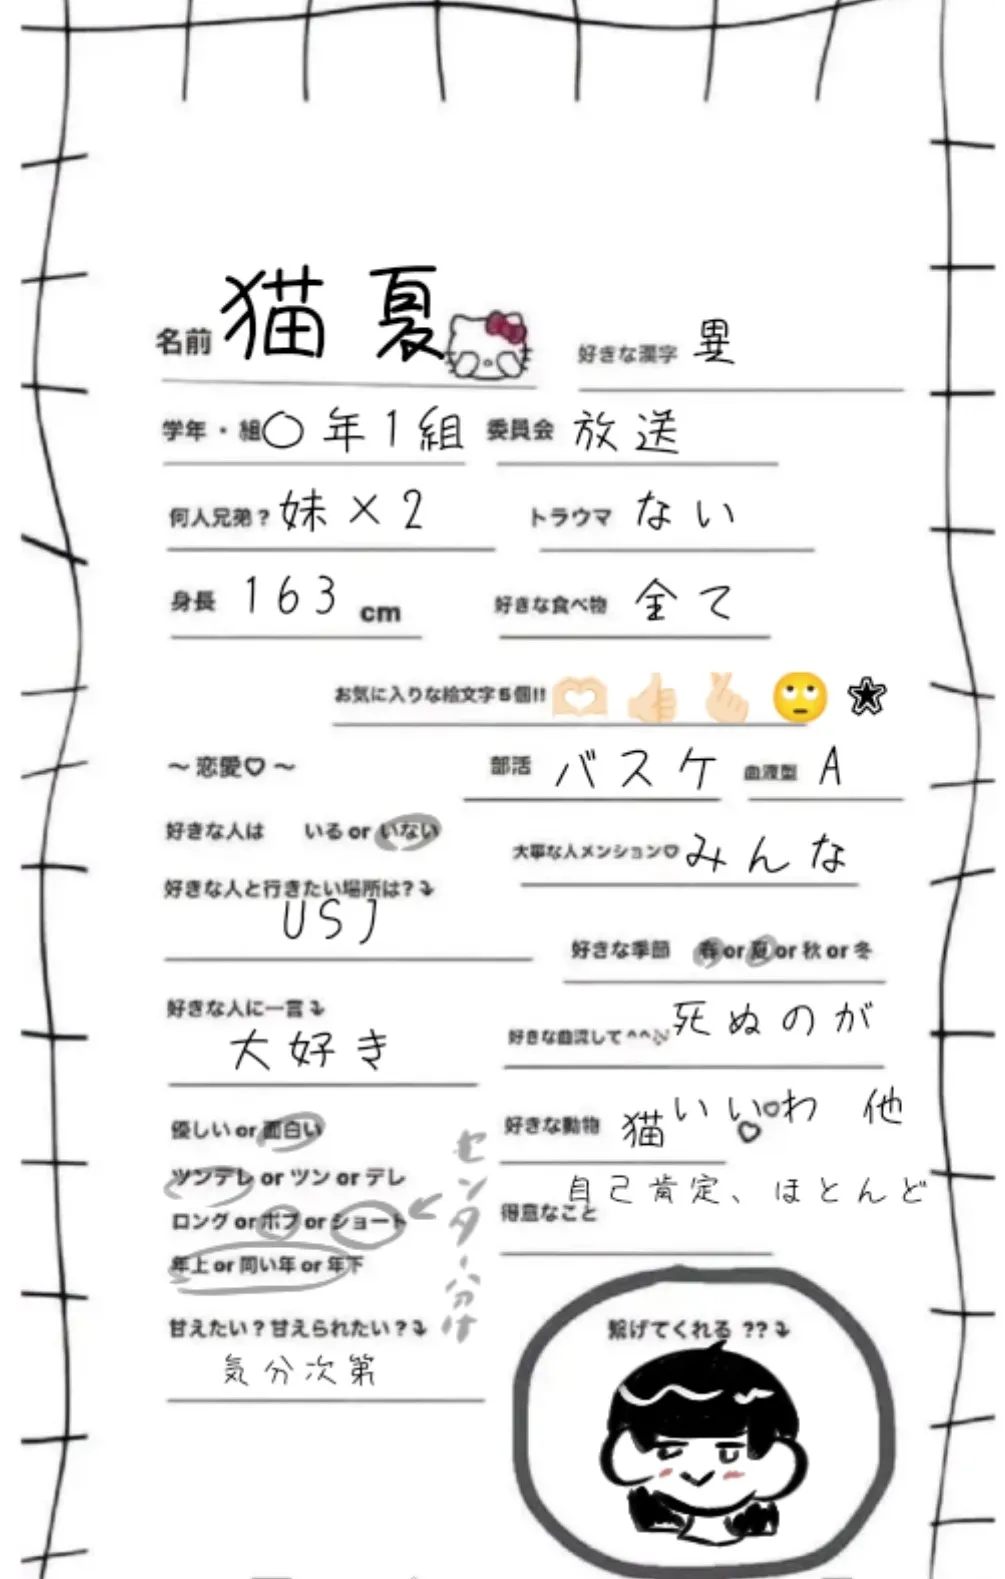 名前 猫夏 好きな漢字 異
学年・組 〇年1組 委員会 放送
何人兄弟? 妹×2 トラウマ ない
身長 163 cm 好きな食べ物 全て
お気に入りな絵文字5個!! 🫶🏻👍🏻🫰🏻🙄✯
〜恋愛♡〜 部活 バスケ 血液型 A
好きな人は いる or いない
大事な人メンション♡ みんな
好きな人と行きたい場所は?⤵
USJ
好きな季節 春or夏or秋or冬
好きな人に一言⤵
大好き
好きな曲流して^^ 死ぬのが
いいわ 他
優しい or 面白い
好きな動物 猫♡♡
ツンデレ or ツン or デレ
ロング or ボブ or ショート ← センター分け
年上 or 同い年 or 年下
得意なこと 自己肯定、ほとんど
甘えたい?甘えられたい?⤵
気分次第
繋げてくれる ??⤵